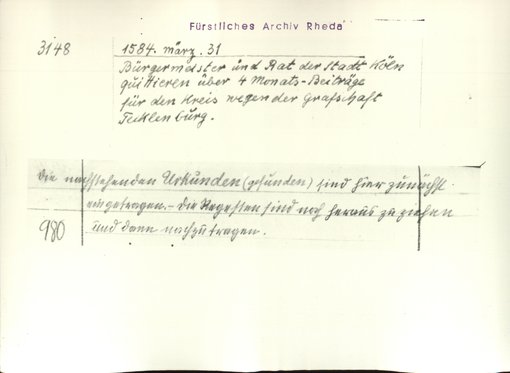 Fürstliches Archiv Rheda
3148 1584. März. 31
Bürgermeister und Rat der Stadt Köln
quittieren über 4 Monats-Beiträge
für den Kreis wegen der Grafschaft
Tecklenburg.
Die nachstehenden Urkunden (gefunden) sind hier zunächst
eingetragen. - Die Regesten sind noch heraus zu ziehen
980 und dann nachzutragen.